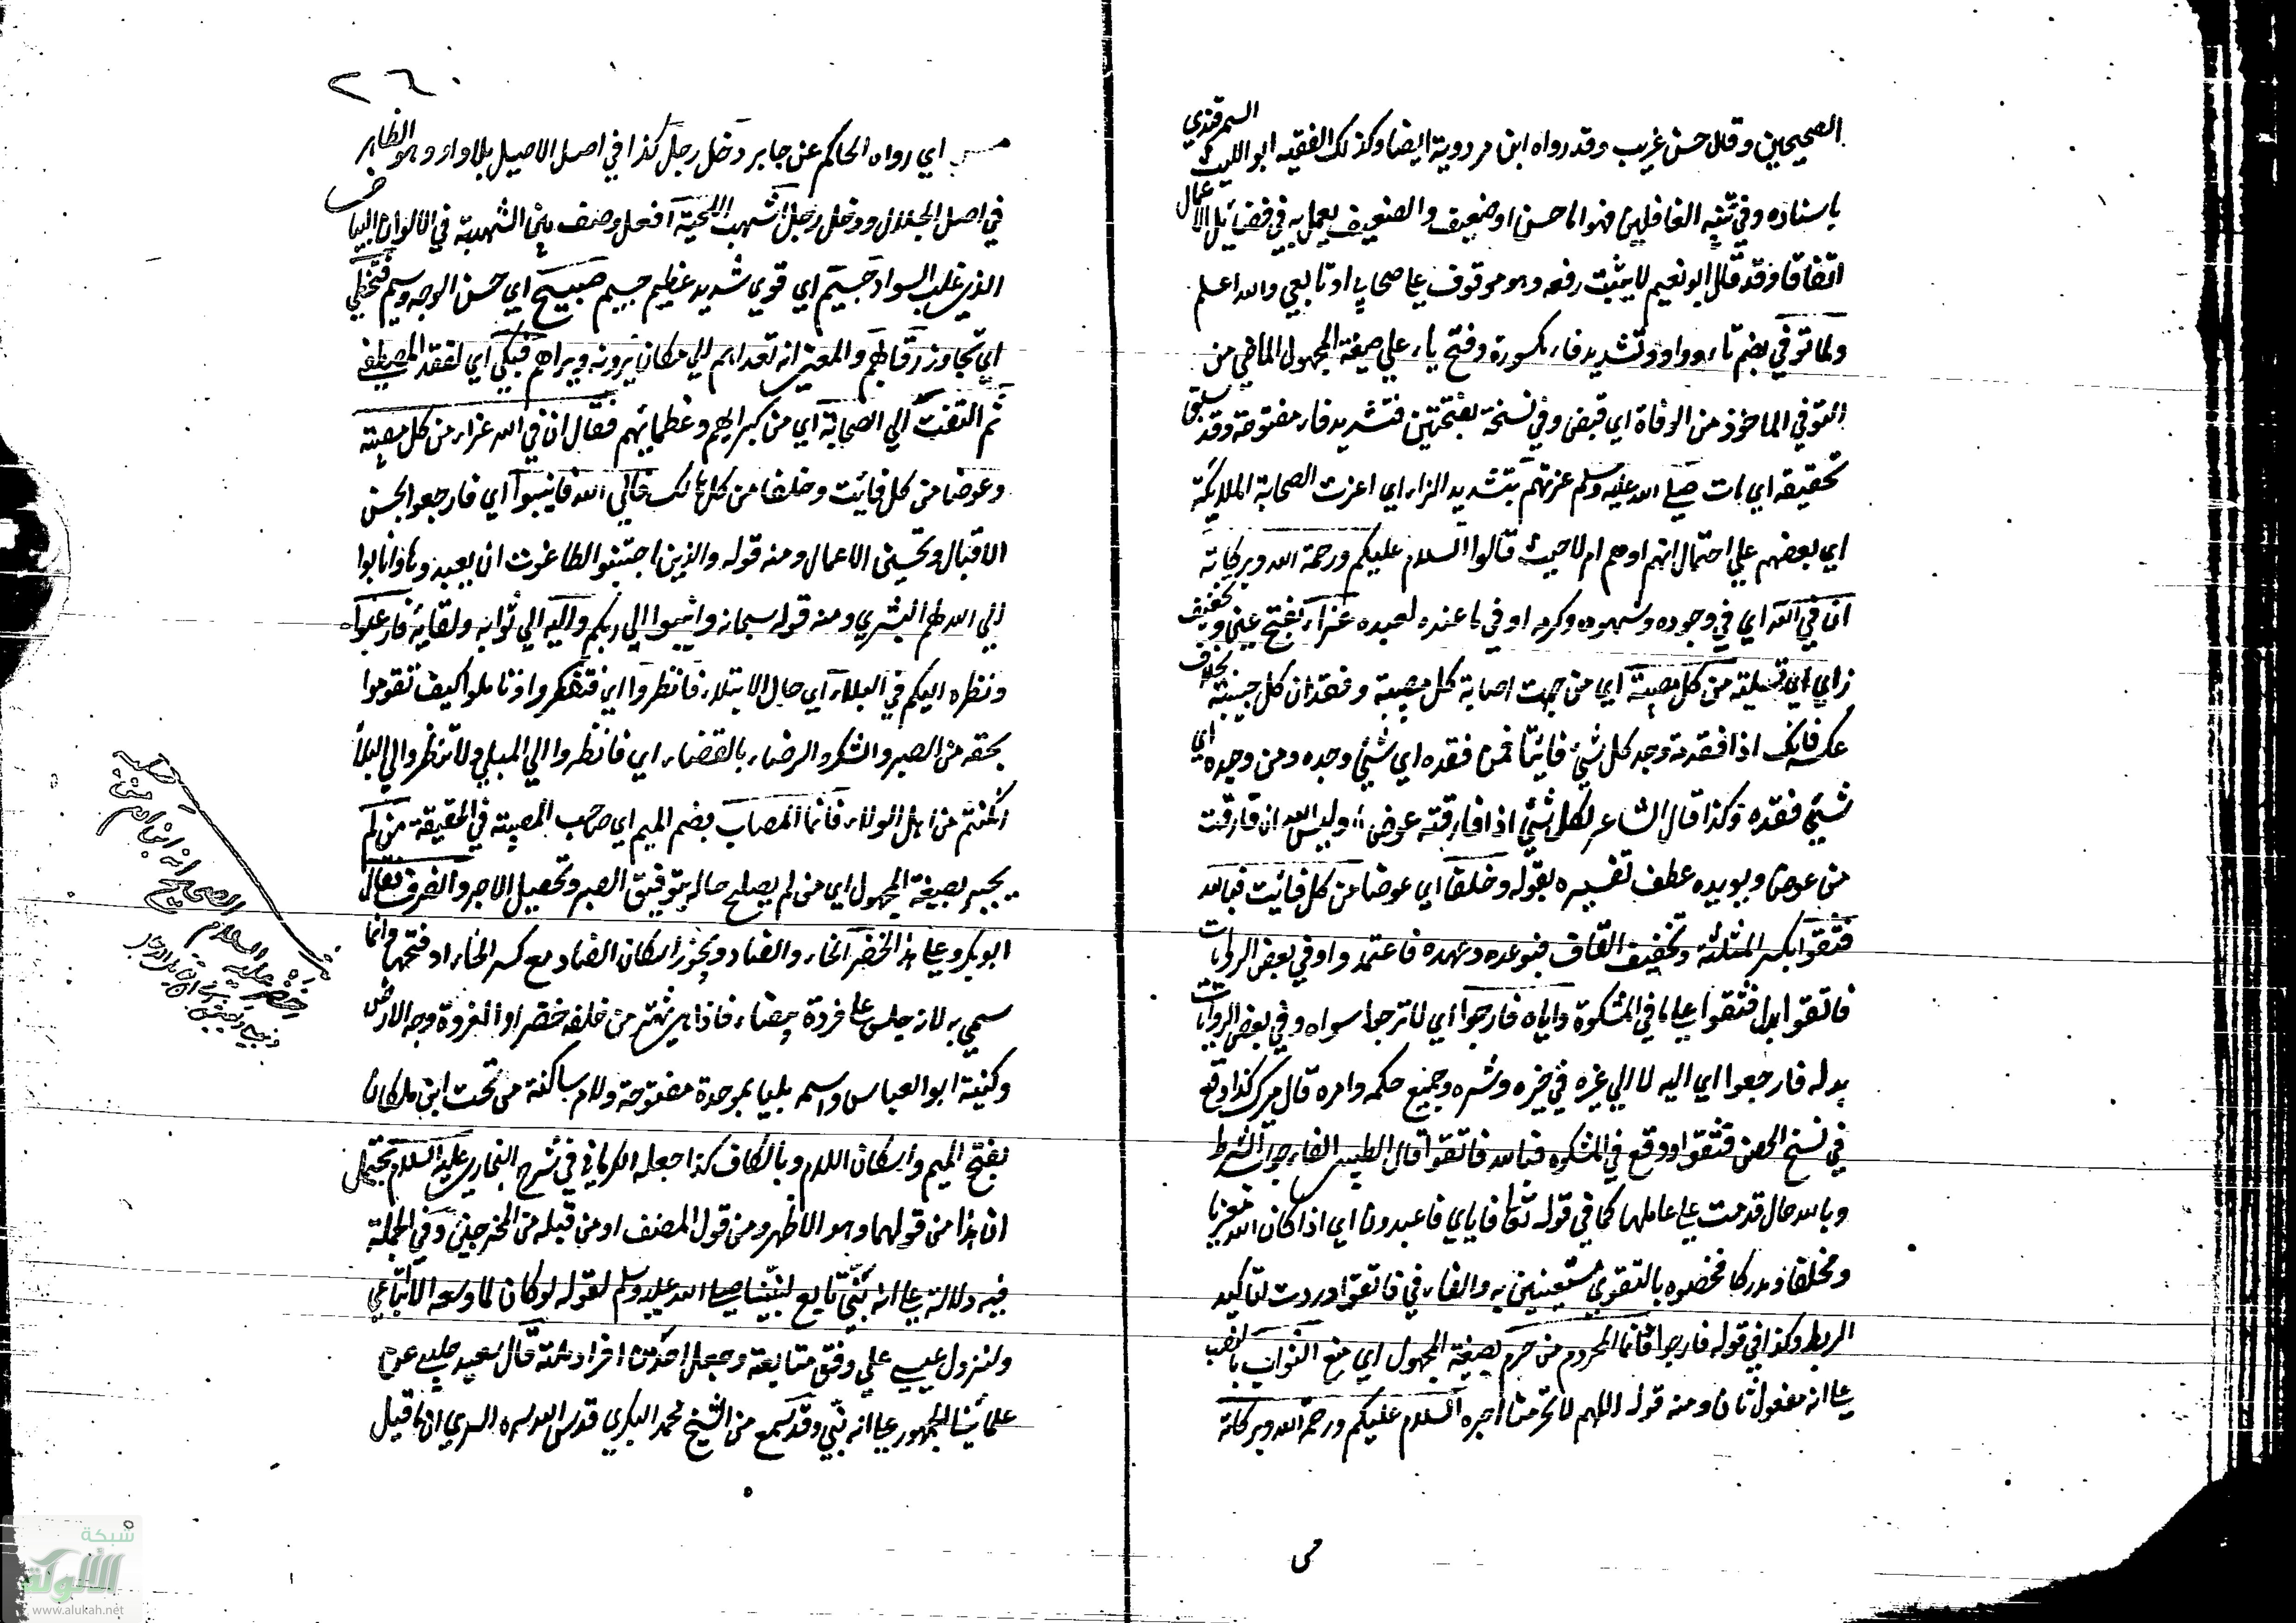 الصحيحين وقال حسن غريب وقد رواه ابن مردوية ايضا وكذلك الفقيه ابو الليث السمرقندي
باسناده وفي تنبيه الغافلين فهو اما حسن او ضعيف والضعيف يعمل به في فضائل الاعمال
اتفاقا وقد قال ابو نعيم لا يثبت رفعه وهو موقوف علي صحابي او تابعي والله اعلم
ولما توفي بضم تاء وواو وتشديد فاء مكسورة وفتح ياء علي صيغة المجهول الماضي من
التوفي الماخوذ من الوفاة اي قبض وفي نسخة بفتحتين فتشديد فاء مفتوحة وقد سبق
تحقيقه اي مات صلي الله عليه وسلم عزتهم بتشديد الزاء اي اعزت الصحابة الملايكة
اي بعضهم علي احتمال انهم اوهم ام لا حيث قالوا السلام عليكم ورحمة الله وبركاته
ان في الله اي في وجوده وشهوده وكرمه او في ما عنده لعبده عزاء بفتح عين وتخفيف
زاي اي تسلية من كل مصيبة اي من جهت اصابة كل مصيبة وفقدان كل حبيبة بخلاف
عكسه فانك اذا فقدته وجد كل شيء فائتا فمن فقده اي شيء وجده ومن وجده اي
شيء فقده وكذا قال الشاعر لكل شيء اذا فارقته عوض وليس لله ان فارقت
من عوض ويويده عطف تفسيره بقوله وخلفا اي عوضا من كل فائت فبالله
فثقوا بكسر المثلثة وتخفيف القاف فبوعده وعهده فاعتمدوا وفي بعض الروايات
فاتقوا بدل فثقوا علي ما في المشكوة واياه فارجوا اي لا ترجوا سواه وفي بعض الروايات
بدله فارجعوا اي اليه لا الي غيره في خيره وشره وجميع حكمه وامره قال ميرك كذا وقع
في نسخ الحصن فثقوا ووقع في المشكوه فبالله فاتقوا قال الطيبي الفاء جواب الشرط
وبالله حال قدمت علي عاملها كما في قوله تعا فاياي فاعبدون اي اذا كان الله معزيا
ومخلفا ومدركا فخصوه بالتقوي مستعينين به والفاء في فاتقوا وردت لتاكيد
الربط وكذا في قوله فارجوا فانما المحروم من حرم بصيغة المجهول اي منع الثواب بالنصب
علي انه مفعول ثان ومنه قوله اللهم لا تحرمنا اجره السلام عليكم ورحمة الله وبركاته
٢٦٠
مس اي رواه الحاكم عن جابر دخل رجل كذا في اصل الاصيل بلا واو وهو الظاهر
في اصل الجلال ودخل رجل اشهب اللحية افعل وصف من الشهبة في الالوان البياض
الذي غلب السواد جسيم اي قوي شديد عظيم جسيم صبيح اي حسن الوجه وسيم فتخطي
اي تجاوز رقابهم والمعني انه تعداهم الي مكان يرونه ويراهم فبكي اي لفقد المصطفي
ثم التفت الي الصحابة اي من كبرايهم وعظمائهم فقال ان في الله عزاء من كل مصيبة
وعوضا من كل فائت وخلفا من كل هالك فالي الله فانيبوا اي فارجعوا بحسن
الاقبال وتحسين الاعمال ومنه قوله والذين اجتنبوا الطاغوت ان يعبدوها وانابوا
الي الله لهم البشري ومنه قوله سبحانه وانيبوا الي ربكم واليه الي ثوابه ولقائه فارغبوا
ونظره اليكم في البلاء اي حال الابتلاء فانظروا اي فتفكروا وتاملوا كيف تقوموا
بحقه من الصبر والشكر والرضاء بالقضاء اي فانظروا الي المبلي ولا تنظروا الي البلاء
ان كنتم من اهل الولاء فانما المصاب بضم الميم اي صاحب المصيبة في الحقيقة من لم
يجبر بصيغة المجهول اي من لم يصلح حاله بتوفيق الصبر وتحصيل الاجر وانصرف فقال
ابو بكر وعلي هذا الخضر الخاء والضاد ويجوز اسكان الضاد مع كسر الخاء او فتحها وانما
سمي به لانه جلس علي فروة بيضاء فاذا هي تهتز من خلفه خضرا والفروة وجه الارض
وكنيته ابو العباس واسمه بليا بموحدة مفتوحة ولام ساكنة من تحت ابن ملكان
بفتح الميم واسكان اللام وبالكاف كذا جعله الكرماني في شرح البخاري عليه السلام يحتمل
ان هذا من قولهما وهو الاظهر ومن قول المصنف او من قبله من المخرجين وفي الجملة
فيه دلالة علي انه نبي تابع لنبينا صلي الله عليه وسلم لقوله لو كان لما وسعه الا اتباعي
ولنزول عيسي علي وفق متابعة وجعل احد من افراد امته قال سعيد
علمائنا الجمهور علي انه نبي وقد سمع من الشيخ محمد البكري قدس الله سره السري ان ما قيل
الصحيح انه
خضر عليه السلام
شبكة
الألوكة
www.alukah.net